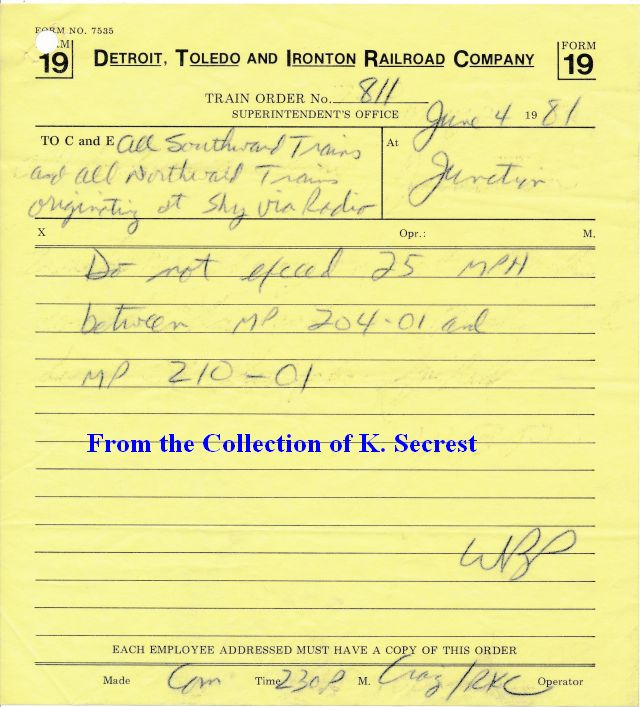 FORM NO. 7535
FORM 19
DETROIT, TOLEDO AND IRONTON RAILROAD COMPANY
FORM 19
TRAIN ORDER No. 811
SUPERINTENDENT'S OFFICE
June 4 1981
TO C and E All Southward Trains
and all Northward Trains
originating at Shy via Radio
At
Junction
X Opr.: M.
Do not exceed 25 MPH
between MP 204-01 and
MP 210-01
From the Collection of K. Secrest
EACH EMPLOYEE ADDRESSED MUST HAVE A COPY OF THIS ORDER
Made Com Time 230P M. Craig/RKC Operator